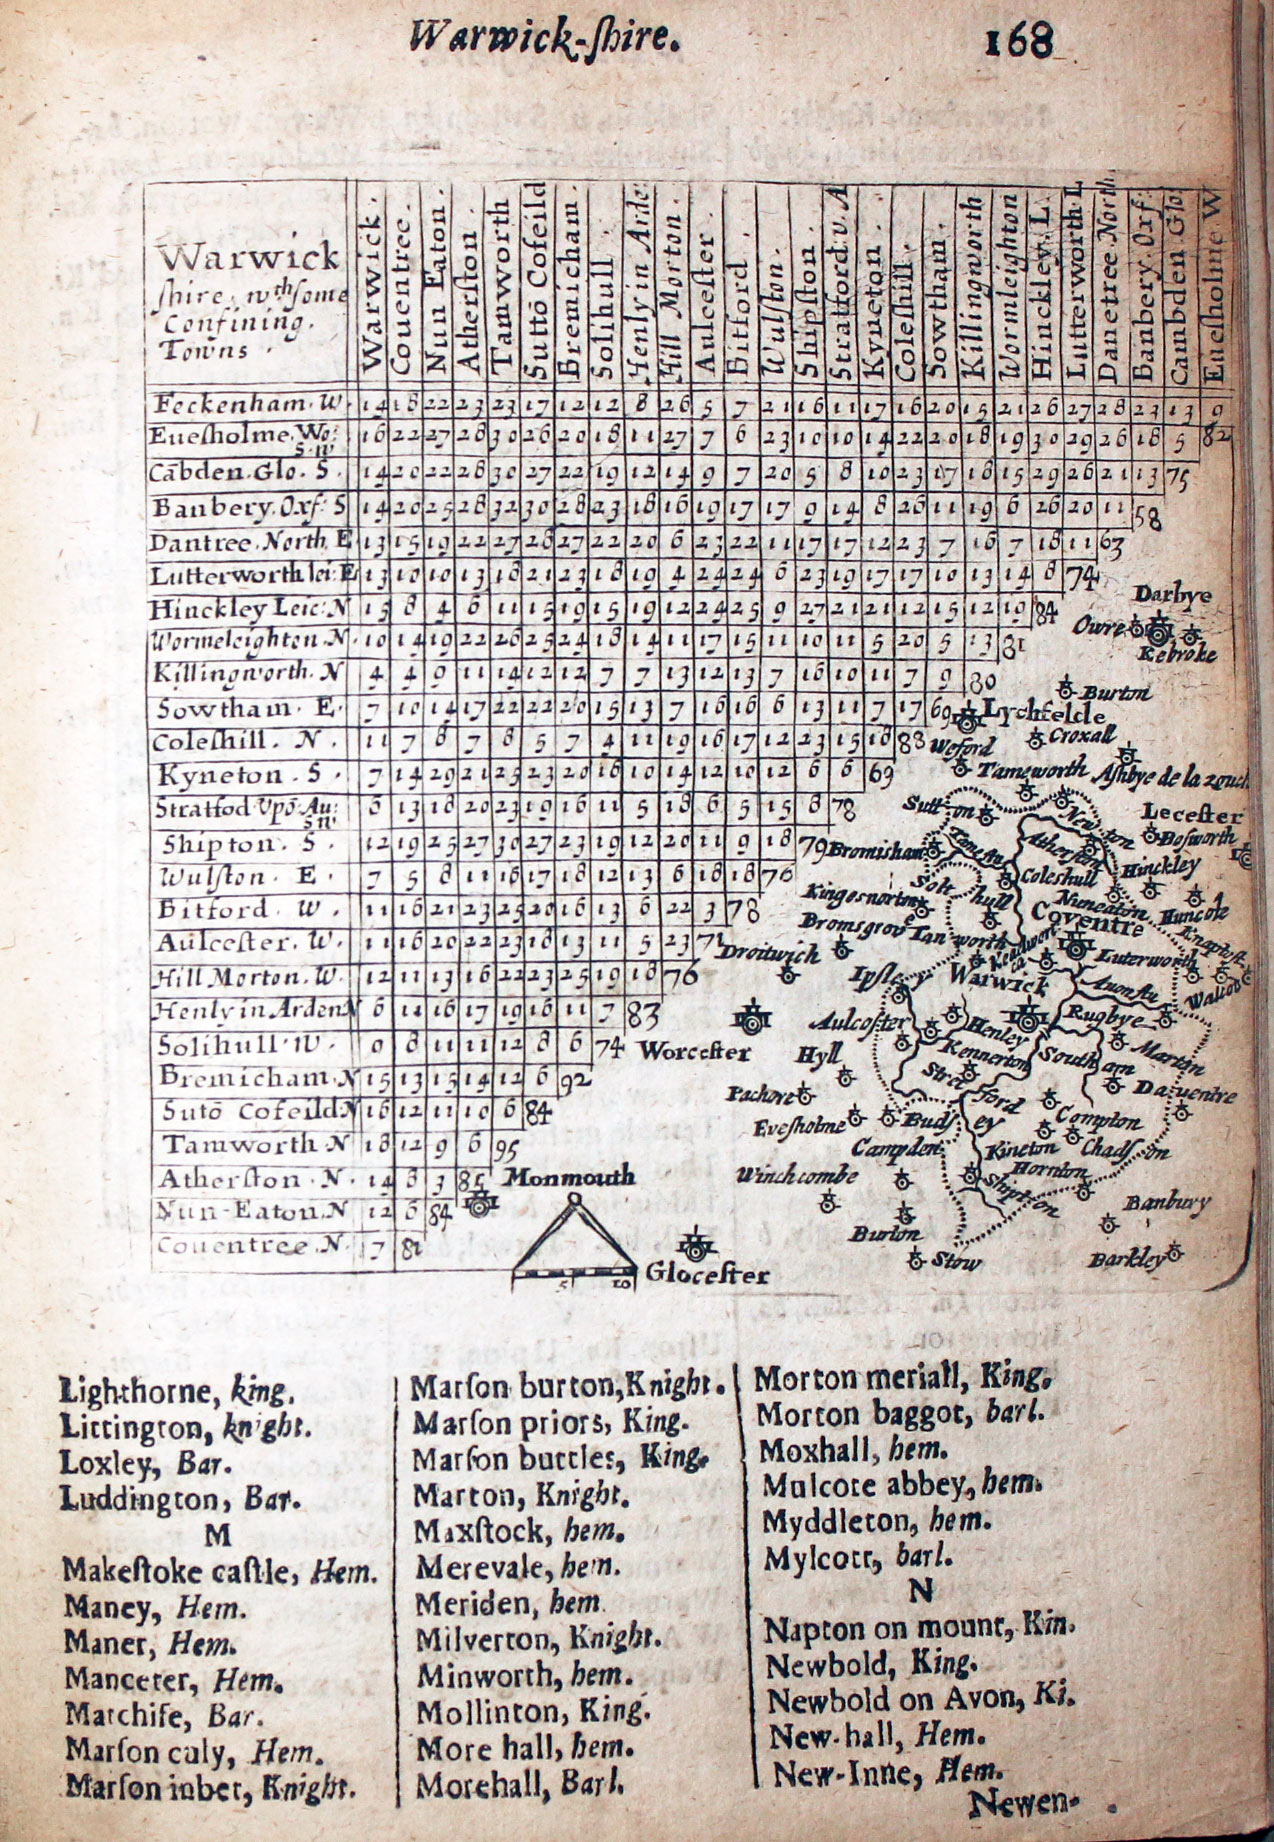 Warwick-ſhire. 168
Warwick
ſhire wth ſome
Confining
Towns
Warwick.
Couentree.
Nun Eaton.
Atherſton.
Tamworth
Suttō Cofeild
Bremicham.
Solihull.
Henly in Arde:
Hill Morton.
Aulceſter.
Bitford.
Wulſton.
Shipſton.
Stratford v. A
Kyneton.
Coleſhill.
Sowtham.
Killingworth
Wormleighton
Hinckley. L.
Lutterworth L
Danetree North.
Banbery. Orf:
Cambden Glo:
Eueſholme W
Feckenham. W. 14 18 22 23 23 17 12 12 8 26 5 7 21 16 11 17 16 20 15 21 26 27 28 23 13 9
Eueſholme. Wo: S. W 16 22 27 28 30 26 20 18 11 27 7 6 23 10 10 14 22 20 18 19 30 29 26 18 5 82
Cābden. Glo. S. 14 20 22 28 30 27 22 19 12 14 9 7 20 5 8 10 23 17 18 15 29 26 21 13 75
Banbery. Oxf: S 14 20 25 28 32 30 28 23 18 16 19 17 17 9 14 8 26 11 19 6 26 20 11 58
Dantree. North. E 13 15 19 22 27 26 27 22 20 6 23 22 11 17 17 12 23 7 16 7 18 11 63
Lutterworth lei: E 13 10 10 13 18 21 23 18 19 4 24 24 6 23 19 17 17 10 13 14 8 74
Hinckley Leic: N 15 8 4 6 11 15 19 15 19 12 24 25 9 27 21 21 12 15 12 19 84
Wormeleighton. N. 10 14 19 22 26 25 24 18 14 11 17 15 11 10 11 5 20 5 13 81
Killingworth. N 4 4 9 11 14 12 12 7 7 13 12 13 7 16 10 11 7 9 80
Sowtham. E. 7 10 14 17 22 22 20 15 13 7 16 16 6 13 11 7 17 69
Coleſhill. N. 11 7 8 7 8 5 7 4 11 19 16 17 12 23 15 18 88
Kyneton. S. 7 14 29 21 25 23 20 16 10 14 12 10 12 6 6 69
Stratfod Vpō. Au: S W 6 13 18 20 23 19 16 11 5 18 6 5 15 8 78
Shipton. S. 12 19 25 27 30 27 23 19 12 20 11 9 18 79
Wulſton. E. 7 5 8 11 16 17 18 12 13 6 18 18 76
Bitford. W. 11 16 21 23 25 20 16 13 6 22 3 78
Aulceſter. W. 11 16 20 22 23 18 13 11 5 23 71
Hill Morton. W. 12 11 13 16 22 23 25 19 18 76
Henly in Arden N 6 11 16 17 19 16 11 7 83
Solihull. W. 9 8 11 11 12 8 6 74
Bremicham. N 15 13 15 14 12 6 92
Sutō Cofeild. N 16 12 11 10 6 84
Tamworth. N 18 12 9 6 95
Atherſton. N. 14 8 3 85
Nun-Eaton. N 12 6 84
Couentree. N. 7 81
Darbye
Owre
Kebroke
Burton
Lychfelde
Croxall
Weford
Tameworth
Aſhbye de la zouch
Sutt-on
New-ton
Leceſter
Boſworth
Tame flu
Atherſton
Bromisham
Hinckley
Coleshull
Soli hull
Nuneaton
Huncote
Kingesnorton
Coventre
Bromsgrove
Lan worth
Luterworth
Droitwich
Ipſley
Warwick
Avon flu
Worceſter
Aulcoſter
Henley
Rugbye
Kennerton
Hyll
South am
Martin
Stret ford
Daventre
Pachore
Eveſholme
Budſ ey
Compton
Campden
Kineton
Chadſ on
Hornton
Winchcombe
Shipt on
Banbury
Burton
Stow
Barkley
Monmouth
Gloceſter
5 10
Lighthorne, king.
Littington, knight.
Loxley, Bar.
Luddington, Bar.
M
Makeſtoke caſtle, Hem.
Maney, Hem.
Maner, Hem.
Manceter, Hem.
Matchife, Bar.
Marſon culy, Hem.
Marſon inbet, Knight.
Marſon burton, Knight.
Marſon priors, King.
Marſon buttles, King.
Marton, Knight.
Maxſtock, hem.
Merevale, hem.
Meriden, hem
Milverton, Knight.
Minworth, hem.
Mollinton, King.
More hall, hem.
Morehall, Barl.
Morton meriall, King.
Morton baggot, barl.
Moxhall, hem.
Mulcote abbey, hem.
Myddleton, hem.
Mylcott, barl.
N
Napton on mount, Kin.
Newbold, King.
Newbold on Avon, Ki.
New-hall, Hem.
New-Inne, Hem.
Newen-